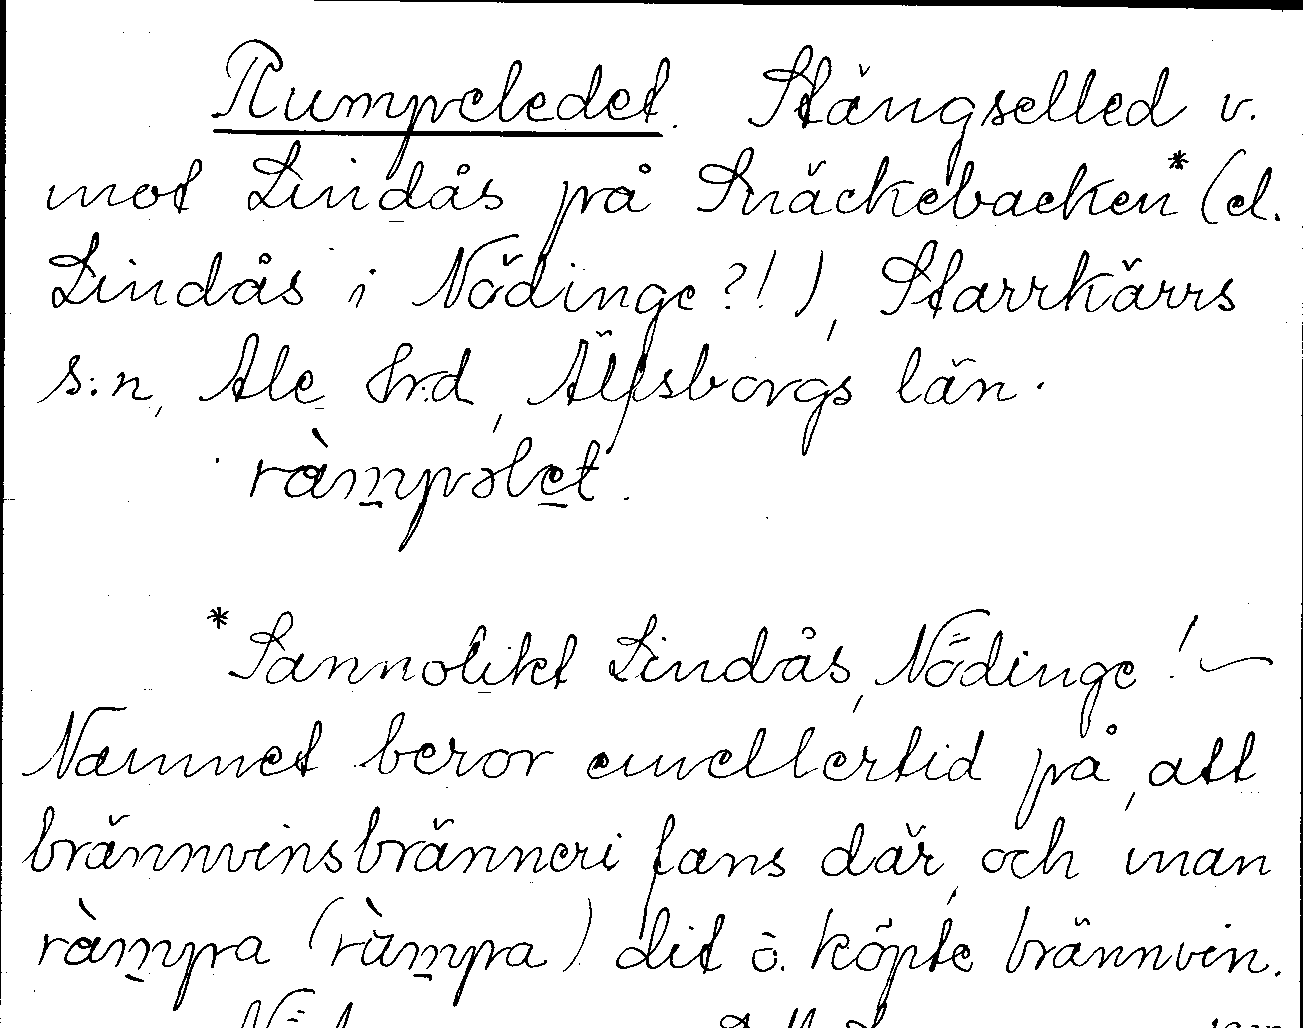 Rumpeledet. Stängselled v.
mot Lindås på Snäckebacken* (el.
Lindås i Nödinge?!), Starrkärrs
s:n, Ale hrd, Älfsborgs län.
ràmpəlet.
*Sannolikt Lindås, Nödinge! —
Namnet beror emellertid på, att
brännvinsbränneri fans där, och man
ràmpa (rùmpa) dit o. köpte brännvin.